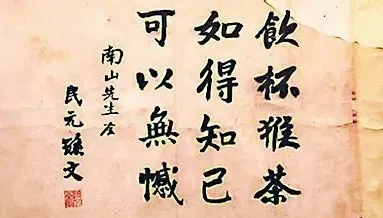 飲杯猴茶
如得知己
可以無憾
南山先生存
民元 孫文